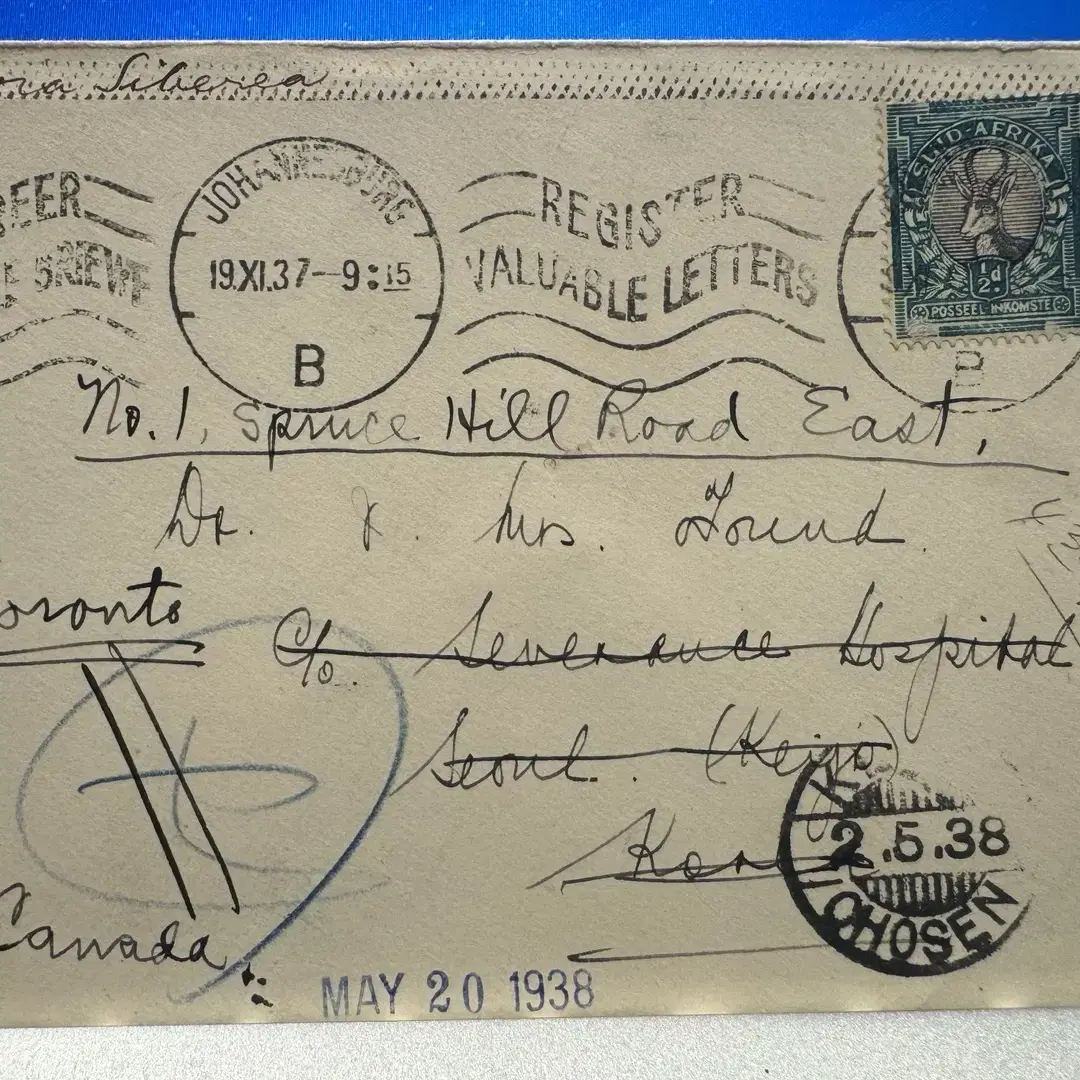 Siberia
JOHANNESBURG
19.XI.37—9:15
B
REGISTER
VALUABLE LETTERS
SUID-AFRIKA
½d
POSSEEL INKOMSTE
B
No. 1, Spruce Hill Road East,
Dr. & Mrs. Found.
Toronto
C/o. Severance Hospital
Seoul. (Keijo)
Canada
2.5.38
CHOSEN
MAY 20 1938